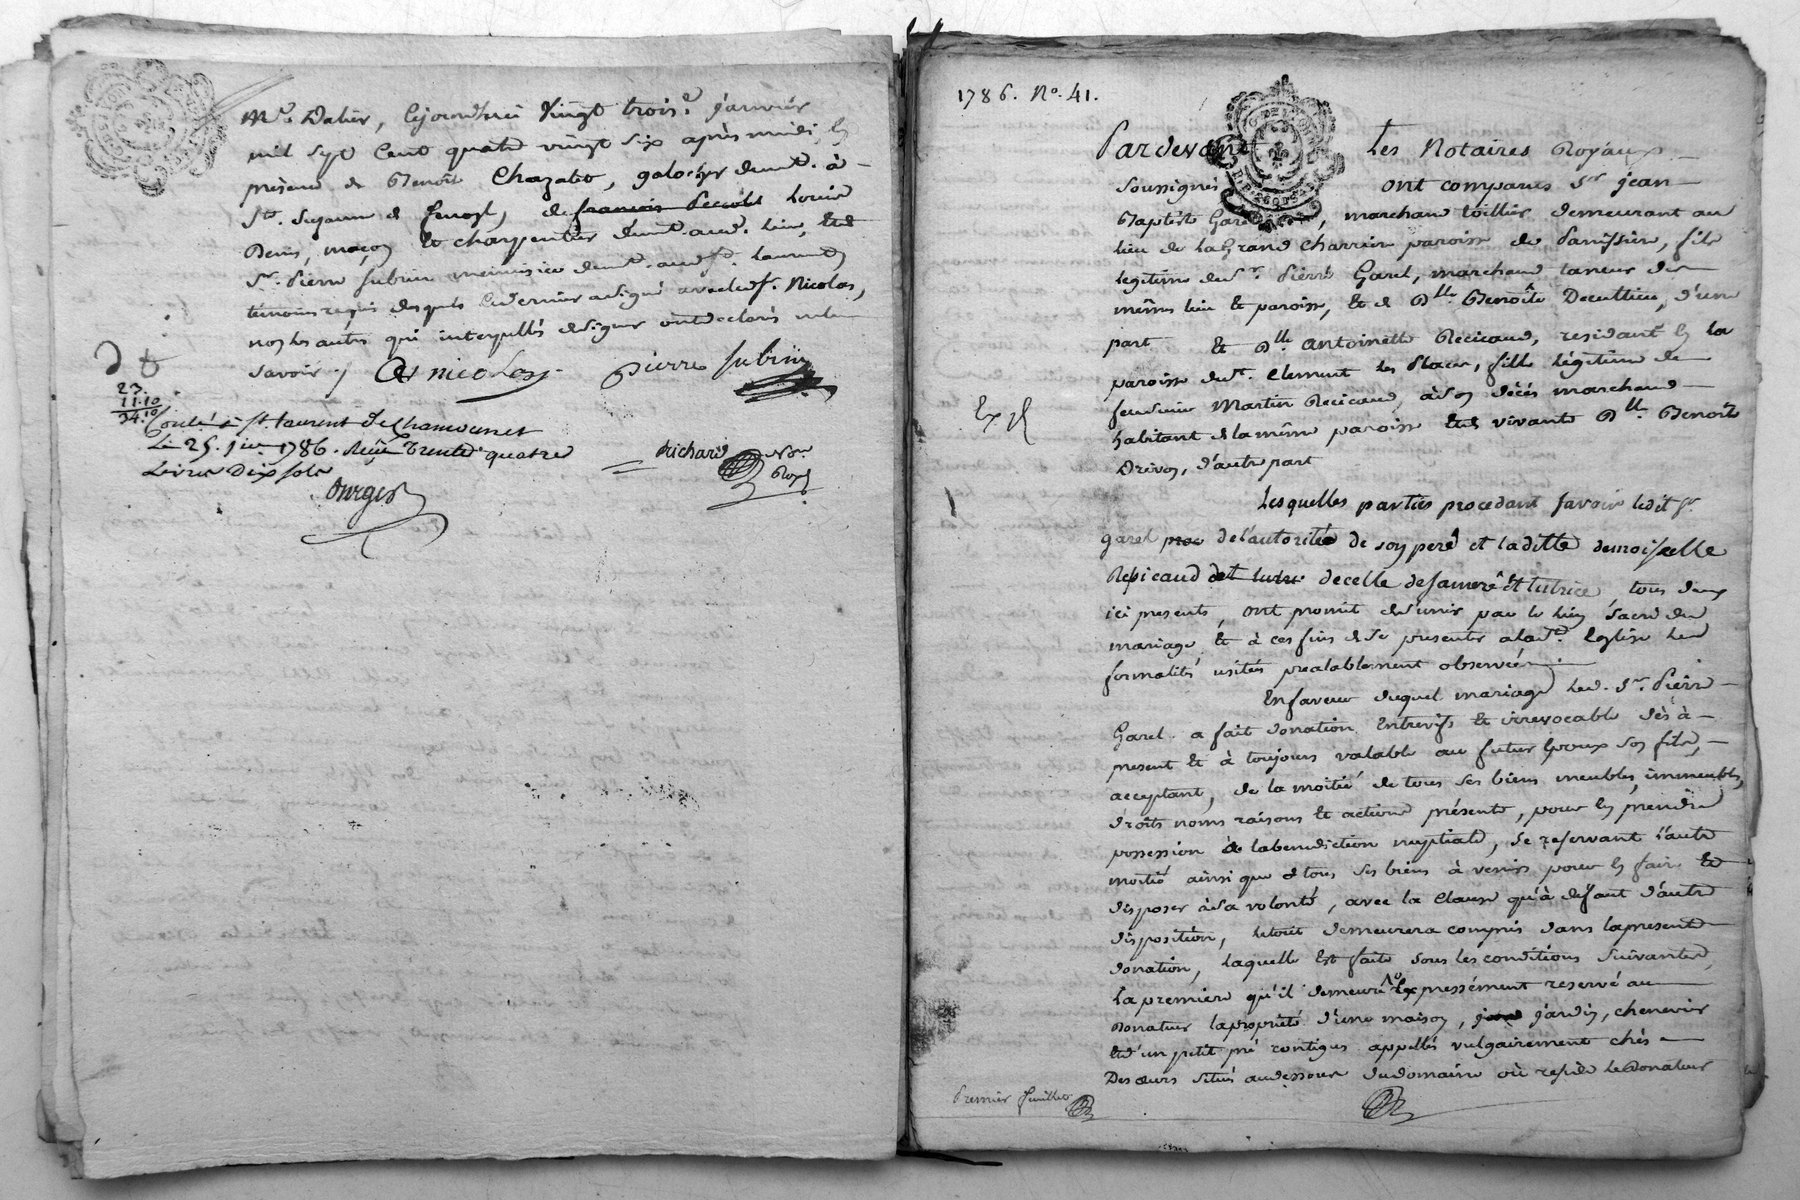 Me. Dalier, cejourdhui vingt trois e. janvier
mil sept cent quatre vingt six après midi, en
présence de Benoît Chazalet, galocher demt. à
St. de francois Louis
Denis, maçon et charpentier demt. aud. lieu, et de
Sr. Pierre Subrin menuisier demt. aud. St. laurent
témoins requis desquels ce dernier a signé avec led. Sr. Nicolas,
non les autres qui interpellés de signer ont declaré ne le
savoir ./.
nicolas
pierre Subrin
23.
11.10
34.10
Conlé à St. laurent de Chamousset
Le 25. jer. 1786. Reçu Trente quatre
Livres dix sols
richard Nre.
Roy
1786. No. 41.
Pardevant Les Notaires Royaux
soussignés ont comparus Sr. jean
Baptiste Garel, marchand toillier demeurant au
lieu de la Grand Charriere paroisse de Panissiere, fils
legitime du Sr. Pierre Garel, marchand taneur du
même lieu et paroisse, et de Dlle. Benoîte Decultieu, d'une
part et Dlle. Antoinette Recicaud, residante en la
paroisse de St. Clement les Places, fille légitime de
feu sieur Martin Recicaud, à son décès marchand
habitant de la même paroisse et de vivante Dlle. Benoîte
Drivon, d'autre part
Lesquelles parties procedant savoir ledit Sr.
garel proc de l'autorité de son pere et laditte demoiselle
Recicaud de celle de sa mere et tutrice, tous deux
ici presents, ont promit de s'unir par le lien sacré du
mariage et à ces fins de se presenter a la Ste. Eglise les
formalités usités prealablement observées.
En faveur duquel mariage led. Sr. Pierre
Garel a fait donation entrevifs et irrevocable dès à
present et à toujours valable au futur Epoux son fils,
acceptant, de la moitié de tous ses biens meubles, immeubles,
droits noms raisons et actions présents, pour en prendre
possession à la benediction nuptiale, se reservant l'autre
moitié ainsi que de tous ses biens à venirs pour en faire et
disposer à sa volonté, avec la clause qu'à défaut d'autre
disposition, le tout demeurera compris dans la presente
donation, laquelle est faite sous les conditions suivantes,
la premiere qu'il demeure expressément reservé au
Donateur la propriété d'une maison, jard jardin, chenevier
et d'un petit pré contigus appellés vulgairement chés
Des œurs situés au dessous du domaine où reside le donateur
Premier feuillet